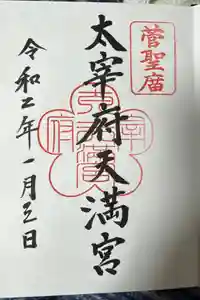 菅聖廟
太宰府天満宮
令和二年一月三日